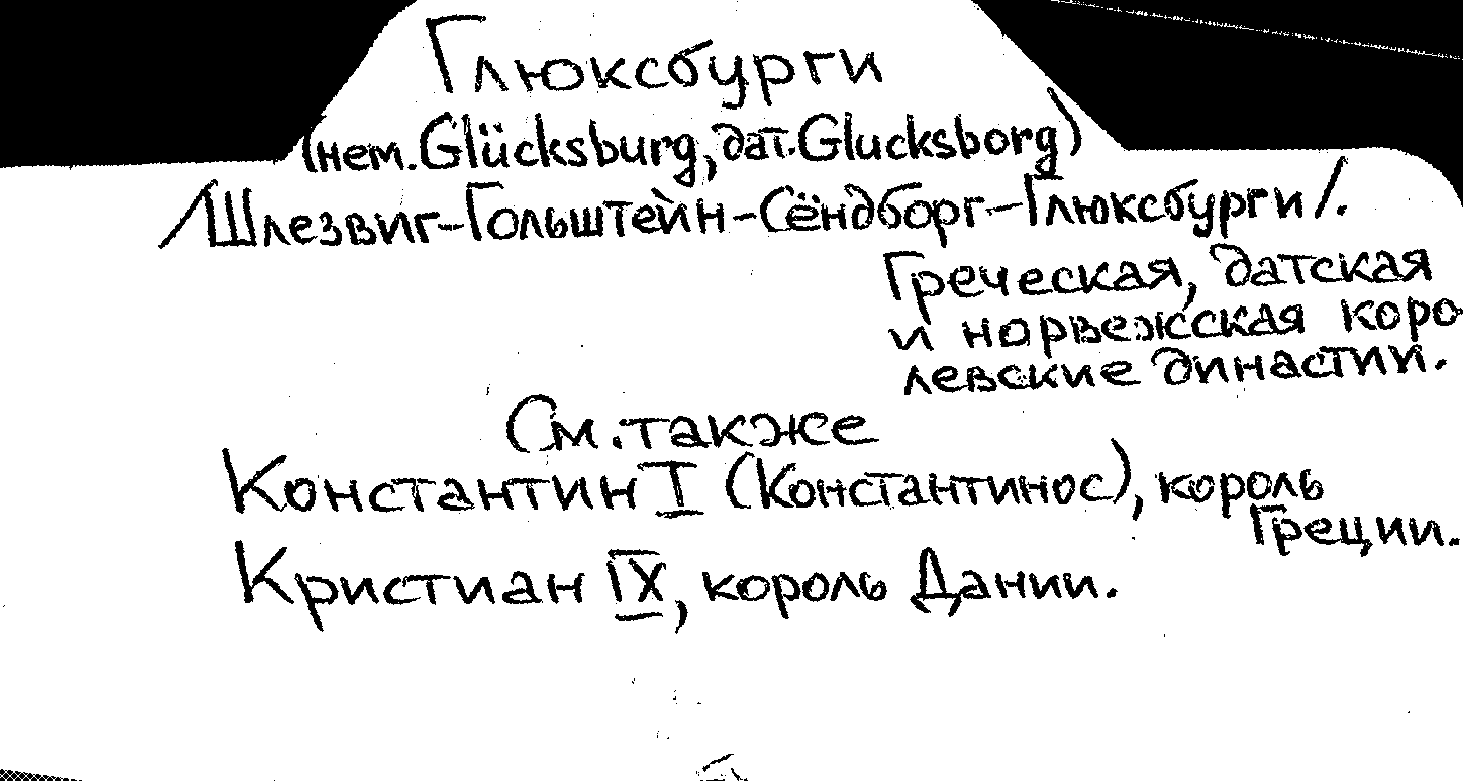 Глюксбурги
(нем. Glücksburg, дат. Glucksborg)
/Шлезвиг-Гольштейн-Сёндборг-Глюксбурги/.
Греческая, датская
и норвежская коро
левские династии.
См. также
Константин I (Константинос), король
Греции.
Кристиан IX, король Дании.